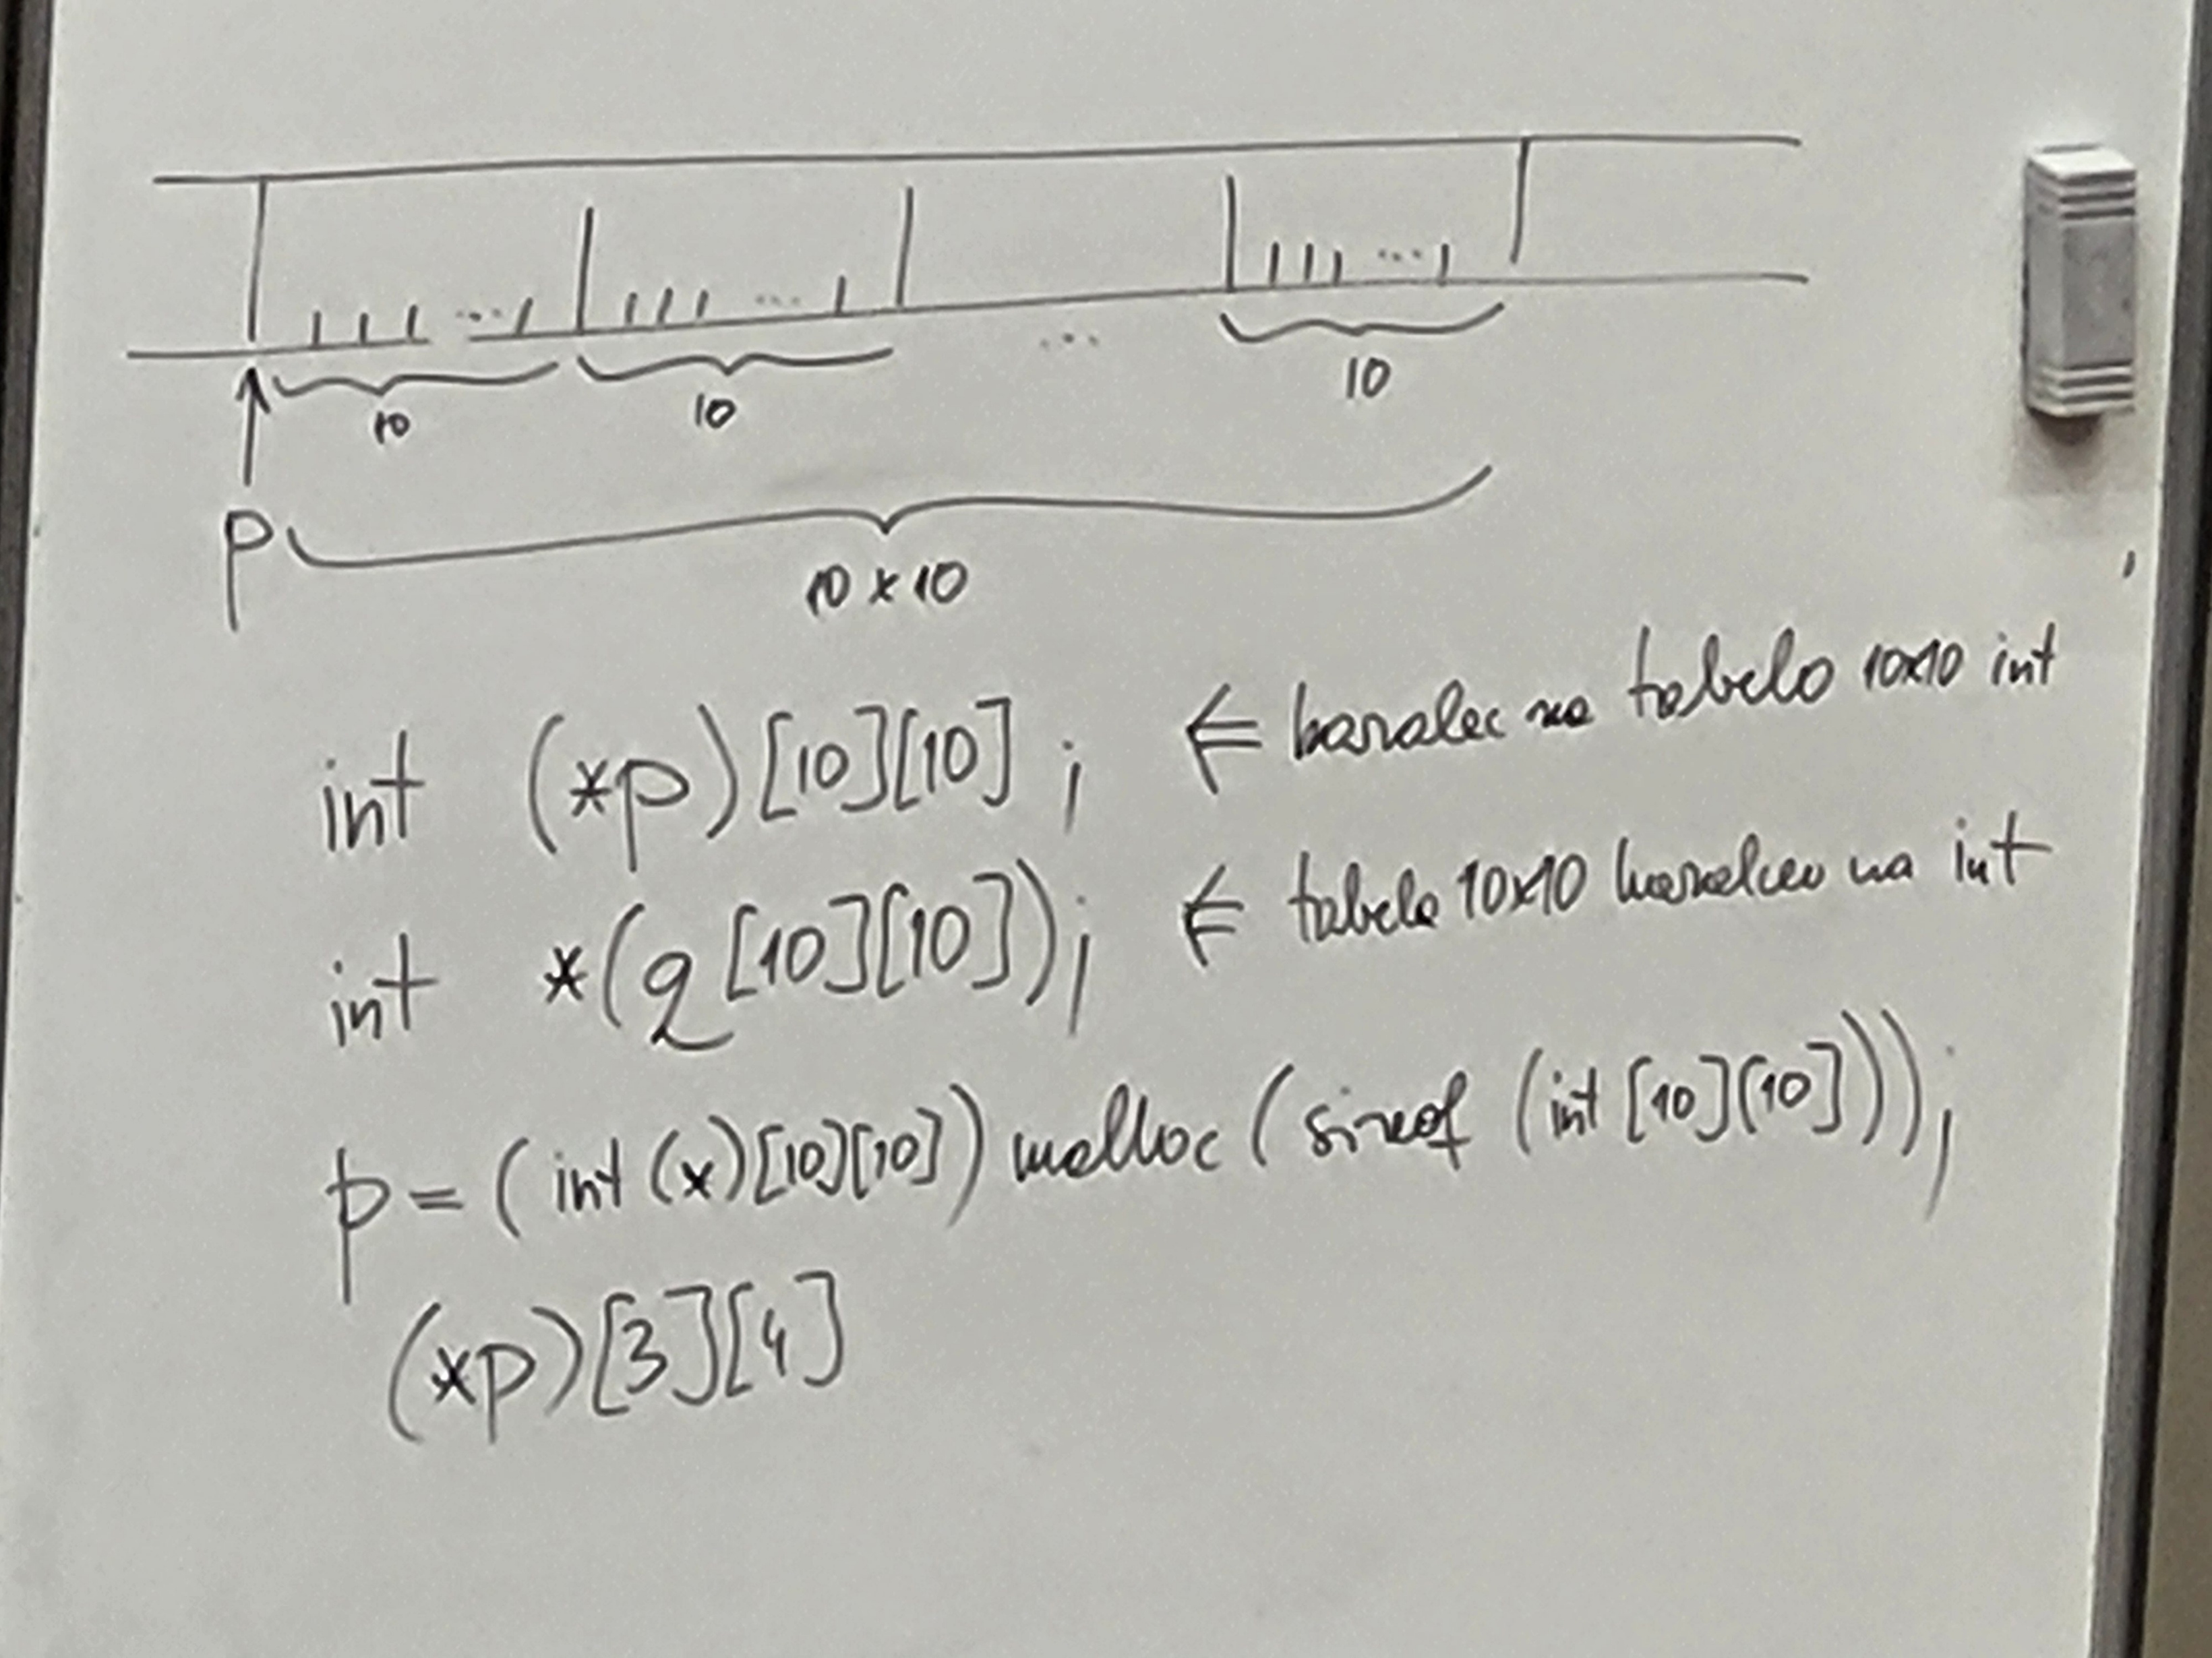 10 10 ... 10
p
10 x 10
int (*p)[10][10]; ⇐ kazalec na tabelo 10x10 int
int *(q[10][10]); ⇐ tabela 10x10 kazalcev na int
p = (int (*)[10][10]) malloc (sizeof (int [10][10]));
(*p)[3][4]